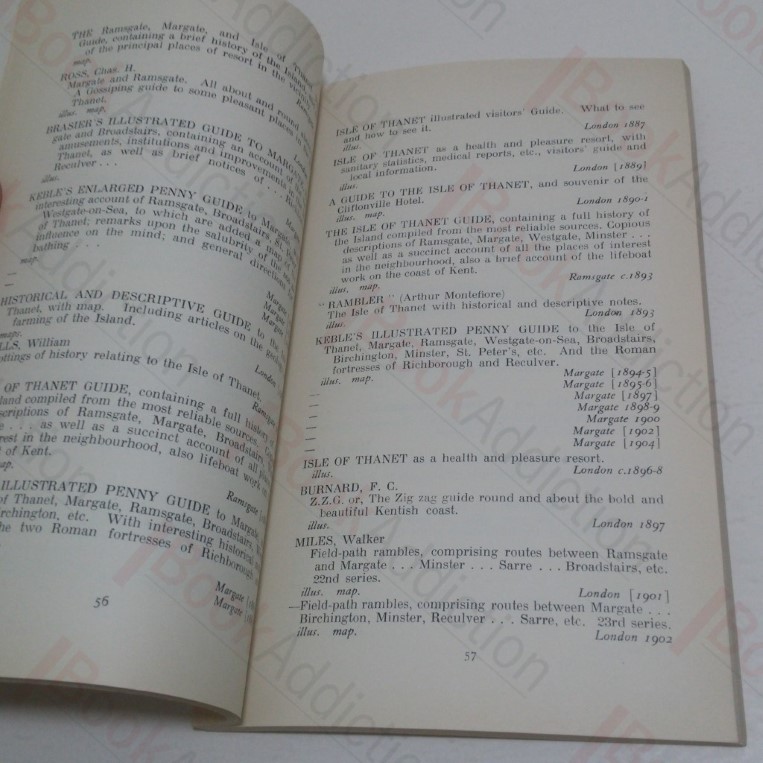 THE Ramsgate, Margate, and Isle of
Guide, containing a brief history of the Island,
of the principal places of resort in the
map.
ROSS, Chas. H.
Margate and Ramsgate. All about and round
A Gossiping guide to some pleasant places
Thanet.
illus. map.
BRASIER'S ILLUSTRATED GUIDE TO
gate and Broadstairs, containing an account of
amusements, institutions and improvements of
Thanet, as well as brief notices of . . .
Reculver . . .
illus.
KEBLE'S ENLARGED PENNY GUIDE to
interesting account of Ramsgate, Broadstairs,
Westgate-on-Sea, to which are added a map of
of Thanet; remarks upon the salubrity of
influence on the mind; and general directions
bathing . . .
map.
—
—
HISTORICAL AND DESCRIPTIVE GUIDE to the
Thanet, with map. Including articles on the
farming of the Island.
maps.
LLS, William
ottings of history relating to the Isle of Thanet.
London
OF THANET GUIDE, containing a full history
land compiled from the most reliable sources.
scriptions of Ramsgate, Margate, Broadstairs,
. . . as well as a succinct account of all
rest in the neighbourhood, also lifeboat work on
t of Kent.
map.
Ramsgate
ILLUSTRATED PENNY GUIDE to
of Thanet, Margate, Ramsgate, Broadstairs,
irchington, etc. With interesting
he two Roman fortresses of Richborough
Margate
Margate
56
ISLE OF THANET illustrated visitors' Guide. What to see
and how to see it.
illus. London 1887
ISLE OF THANET as a health and pleasure resort, with
sanitary statistics, medical reports, etc., visitors' guide and
local information.
illus. London [1889]
A GUIDE TO THE ISLE OF THANET, and souvenir of the
Cliftonville Hotel.
illus. map. London 1890-1
THE ISLE OF THANET GUIDE, containing a full history of
the Island compiled from the most reliable sources. Copious
descriptions of Ramsgate, Margate, Westgate, Minster . . .
as well as a succinct account of all the places of interest
in the neighbourhood, also a brief account of the lifeboat
work on the coast of Kent.
illus. map. Ramsgate c.1893
"RAMBLER" (Arthur Montefiore)
The Isle of Thanet with historical and descriptive notes.
illus. London 1893
KEBLE'S ILLUSTRATED PENNY GUIDE to the Isle of
Thanet, Margate, Ramsgate, Westgate-on-Sea, Broadstairs,
Birchington, Minster, St. Peter's, etc. And the Roman
fortresses of Richborough and Reculver.
illus. map. Margate [1894-5]
— Margate [1895-6]
— Margate [1897]
— Margate 1898-9
— Margate 1900
— Margate [1902]
— Margate [1904]
ISLE OF THANET as a health and pleasure resort.
illus. London c.1896-8
BURNARD, F. C.
Z.Z.G. or, The Zig zag guide round and about the bold and
beautiful Kentish coast.
illus. London 1897
MILES, Walker
Field-path rambles, comprising routes between Ramsgate
and Margate . . . Minster . . . Sarre . . . Broadstairs, etc.
22nd series.
illus. map. London [1901]
—Field-path rambles, comprising routes between Margate . . .
Birchington, Minster, Reculver . . . Sarre, etc. 23rd series.
illus. map. London 1902
57
Book Addiction